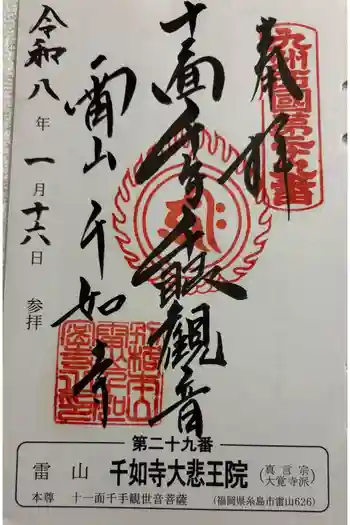 九州西國第廿九番
奉拝
十一面千手千眼観音
雷山千如寺
令和八年一月十六日 参拝
第二十九番
雷山 千如寺大悲王院 (真言宗大覚寺派)
本尊 十一面千手観世音菩薩 (福岡県糸島市雷山626)